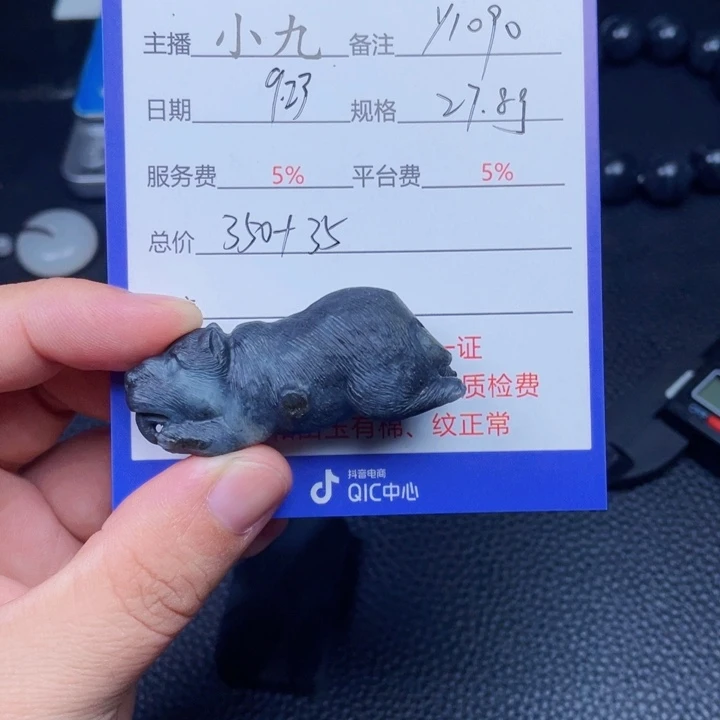 主播 小九 备注 Y1090
日期 9.23 规格 27.8g
服务费 5% 平台费 5%
总价 350+35
一证
质检费
玉有棉、纹正常
抖音电商
QIC中心